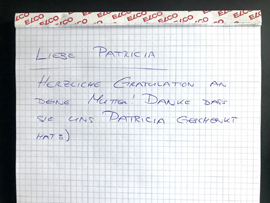 ELCO ELCO ELCO ELCO ELCO ELCO
LIEBE PATRICIA
HERZLICHE GRATULATION AN
DEINE MUTTER! DANKE DASS
SIE UNS PATRICIA GESCHENKT
HAT :)